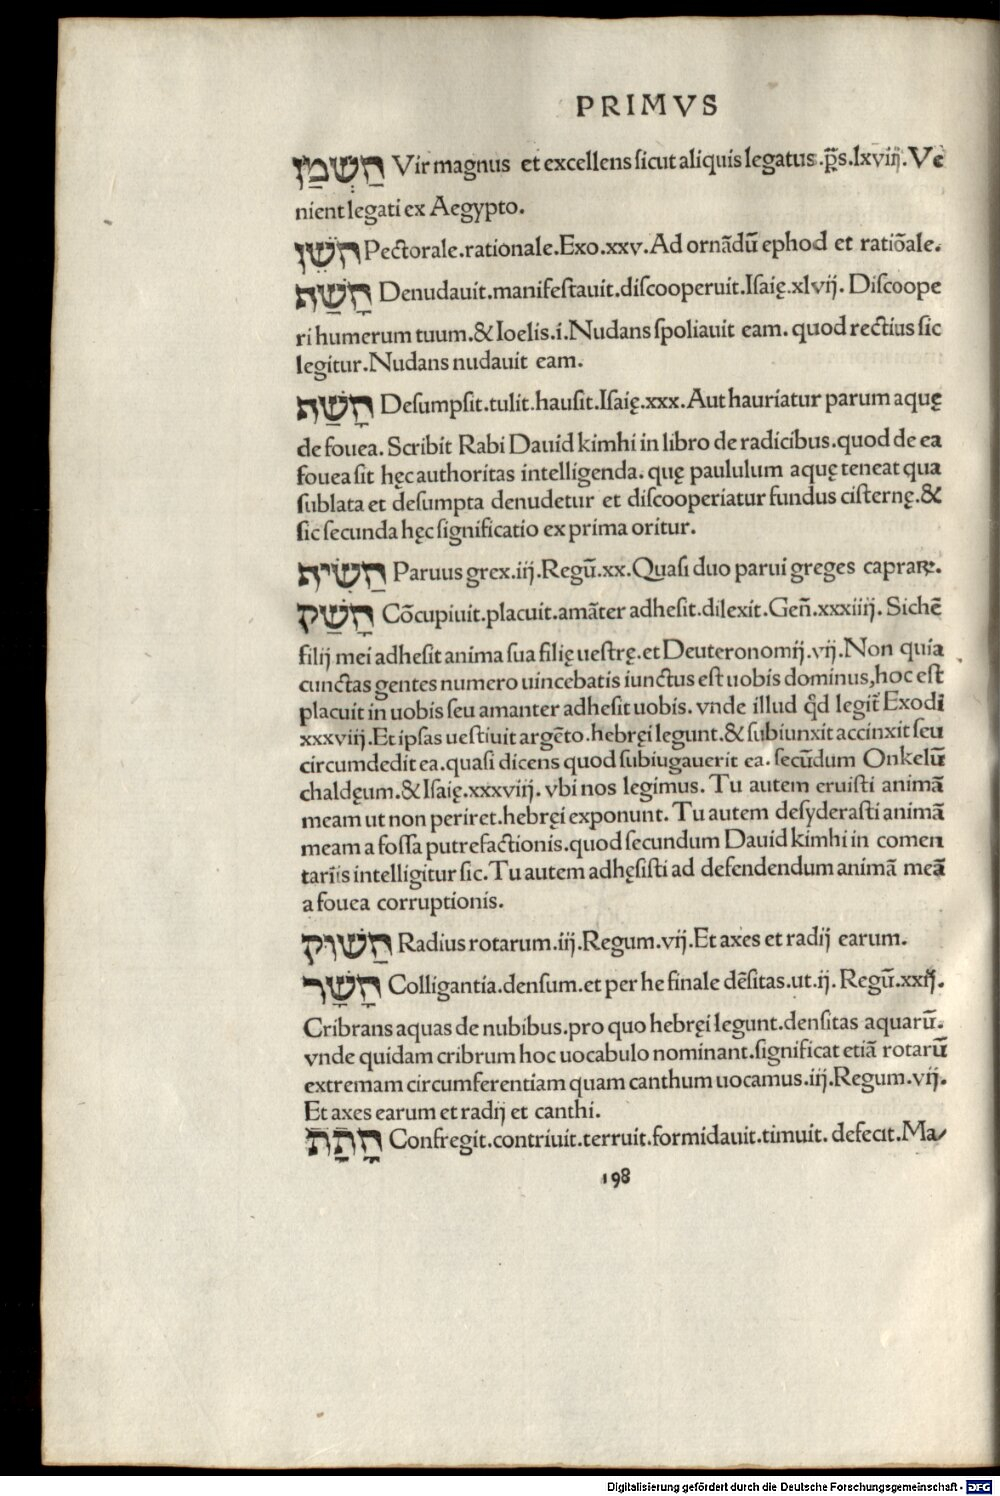 PRIMVS
חַשְׁמַן Vir magnus et excellens sicut aliquis legatus.p̃s.lxvij.Ve
nient legati ex Aegypto.
חֹשֶׁן Pectorale.rationale.Exo.xxv.Ad ornãdũ ephod et ratiõale.
חָשַׂף Denudauit.manifestauit.discooperuit.Isaię.xlvij. Discoope
ri humerum tuum.&Ioelis.i.Nudans spoliauit eam. quod rectius sic
legitur.Nudans nudauit eam.
חָשַׂף Desumpsit.tulit.hausit.Isaię.xxx.Aut hauriatur parum aquę
de fouea. Scribit Rabi Dauid kimhi in libro de radicibus.quod de ea
fouea sit hęc authoritas intelligenda. quę paululum aquę teneat qua
sublata et desumpta denudetur et discooperiatur fundus cisternę.&
sic secunda hęc significatio ex prima oritur.
חָשִׂיף Paruus grex.iij.Regũ.xx.Quasi duo parui greges capraꝝ.
חָשַׁק Cõcupiuit.placuit.amãter adhesit.dilexit.Geñ.xxxiiij. Sichẽ
filij mei adhesit anima sua filię uestrę.et Deuteronomij.vij.Non quia
cunctas gentes numero uincebatis iunctus est uobis dominus,hoc est
placuit in uobis seu amanter adhesit uobis. vnde illud q̃d legit̃ Exodi
xxxviij.Et ipsas uestiuit argẽto.hebręi legunt.&subiunxit accinxit seu
circumdedit ea.quasi dicens quod subiugauerit ea. secũdum Onkelũ
chaldęum.&Isaię.xxxviij. vbi nos legimus. Tu autem eruisti animã
meam ut non periret.hebręi exponunt. Tu autem desyderasti animã
meam a fossa putrefactionis.quod secundum Dauid kimhi in comen
tariis intelligitur sic.Tu autem adhęsisti ad defendendum animã meã
a fouea corruptionis.
חִשּׁוּק Radius rotarum.iij.Regum.vij.Et axes et radij earum.
חָשַׁר Colligantia.densum.et per he finale dẽsitas.ut.ij. Regũ.xxij.
Cribrans aquas de nubibus.pro quo hebręi legunt.densitas aquarũ.
vnde quidam cribrum hoc uocabulo nominant.significat etiã rotarũ
extremam circumferentiam quam canthum uocamus.iij.Regum.vij.
Et axes earum et radij et canthi.
חָתַת Confregit.contriuit.terruit.formidauit.timuit. defecit.Ma/
198
Digitalisierung gefördert durch die Deutsche Forschungsgemeinschaft - DFG